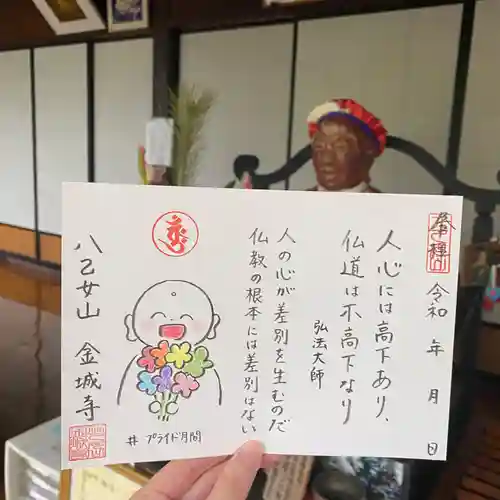 奉拝
令和 年 月 日
人心には高下あり、
仏道は不高下なり
弘法大師
人の心が差別を生むのだ
仏教の根本には差別はない
八乙女山 金城寺
#プライド月間